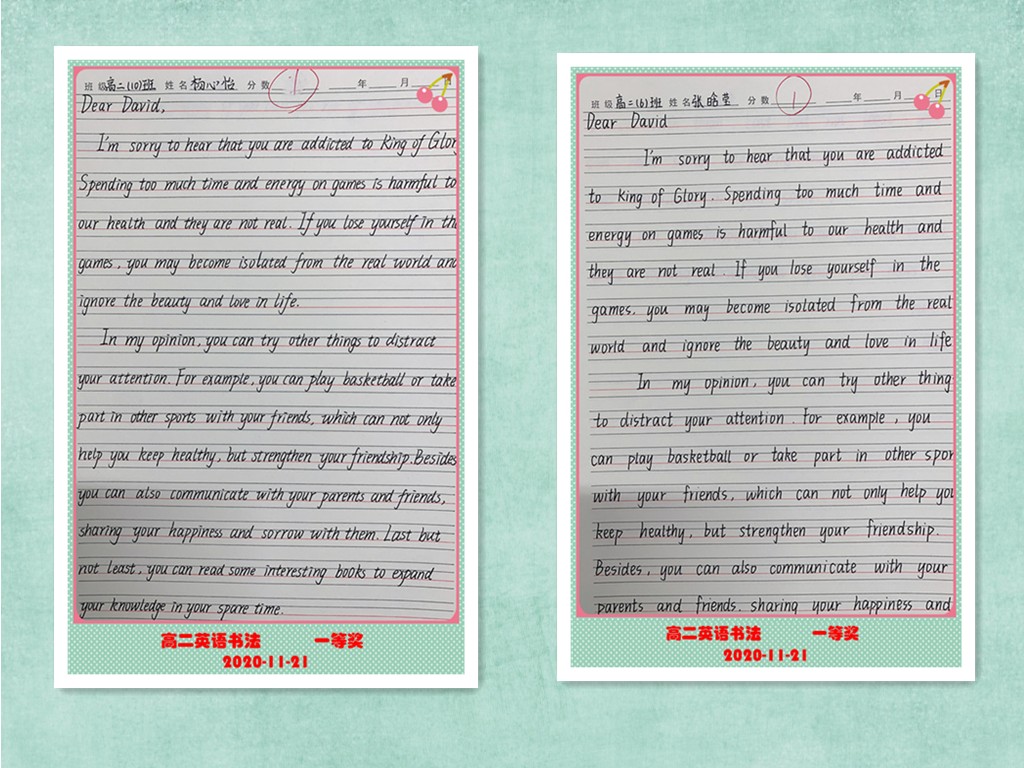 班级高二(10)班 姓名杨心怡 分数 1 年 月
Dear David,
I'm sorry to hear that you are addicted to King of Glor
Spending too much time and energy on games is harmful to
our health and they are not real. If you lose yourself in th
games, you may become isolated from the real world and
ignore the beauty and love in life.
In my opinion, you can try other things to distract
your attention. For example, you can play basketball or take
part in other sports with your friends, which can not only
help you keep healthy, but strengthen your friendship. Besides
you can also communicate with your parents and friends,
sharing your happiness and sorrow with them. Last but
not least, you can read some interesting books to expand
your knowledge in your spare time.
高二英语书法 一等奖
2020-11-21
班级 高二(6)班 姓名张皓莹 分数 1 年 月 日
Dear David
I'm sorry to hear that you are addicted
to King of Glory. Spending too much time and
energy on games is harmful to our health and
they are not real. If you lose yourself in the
games. you may become isolated from the real
world and ignore the beauty and love in life
In my opinion, you can try other thing
to distract your attention. For example, you
can play basketball or take part in other spor
with your friends, which can not only help you
keep healthy, but strengthen your friendship.
Besides, you can also communicate with your
parents and friends. sharing your happiness and
高二英语书法 一等奖
2020-11-21